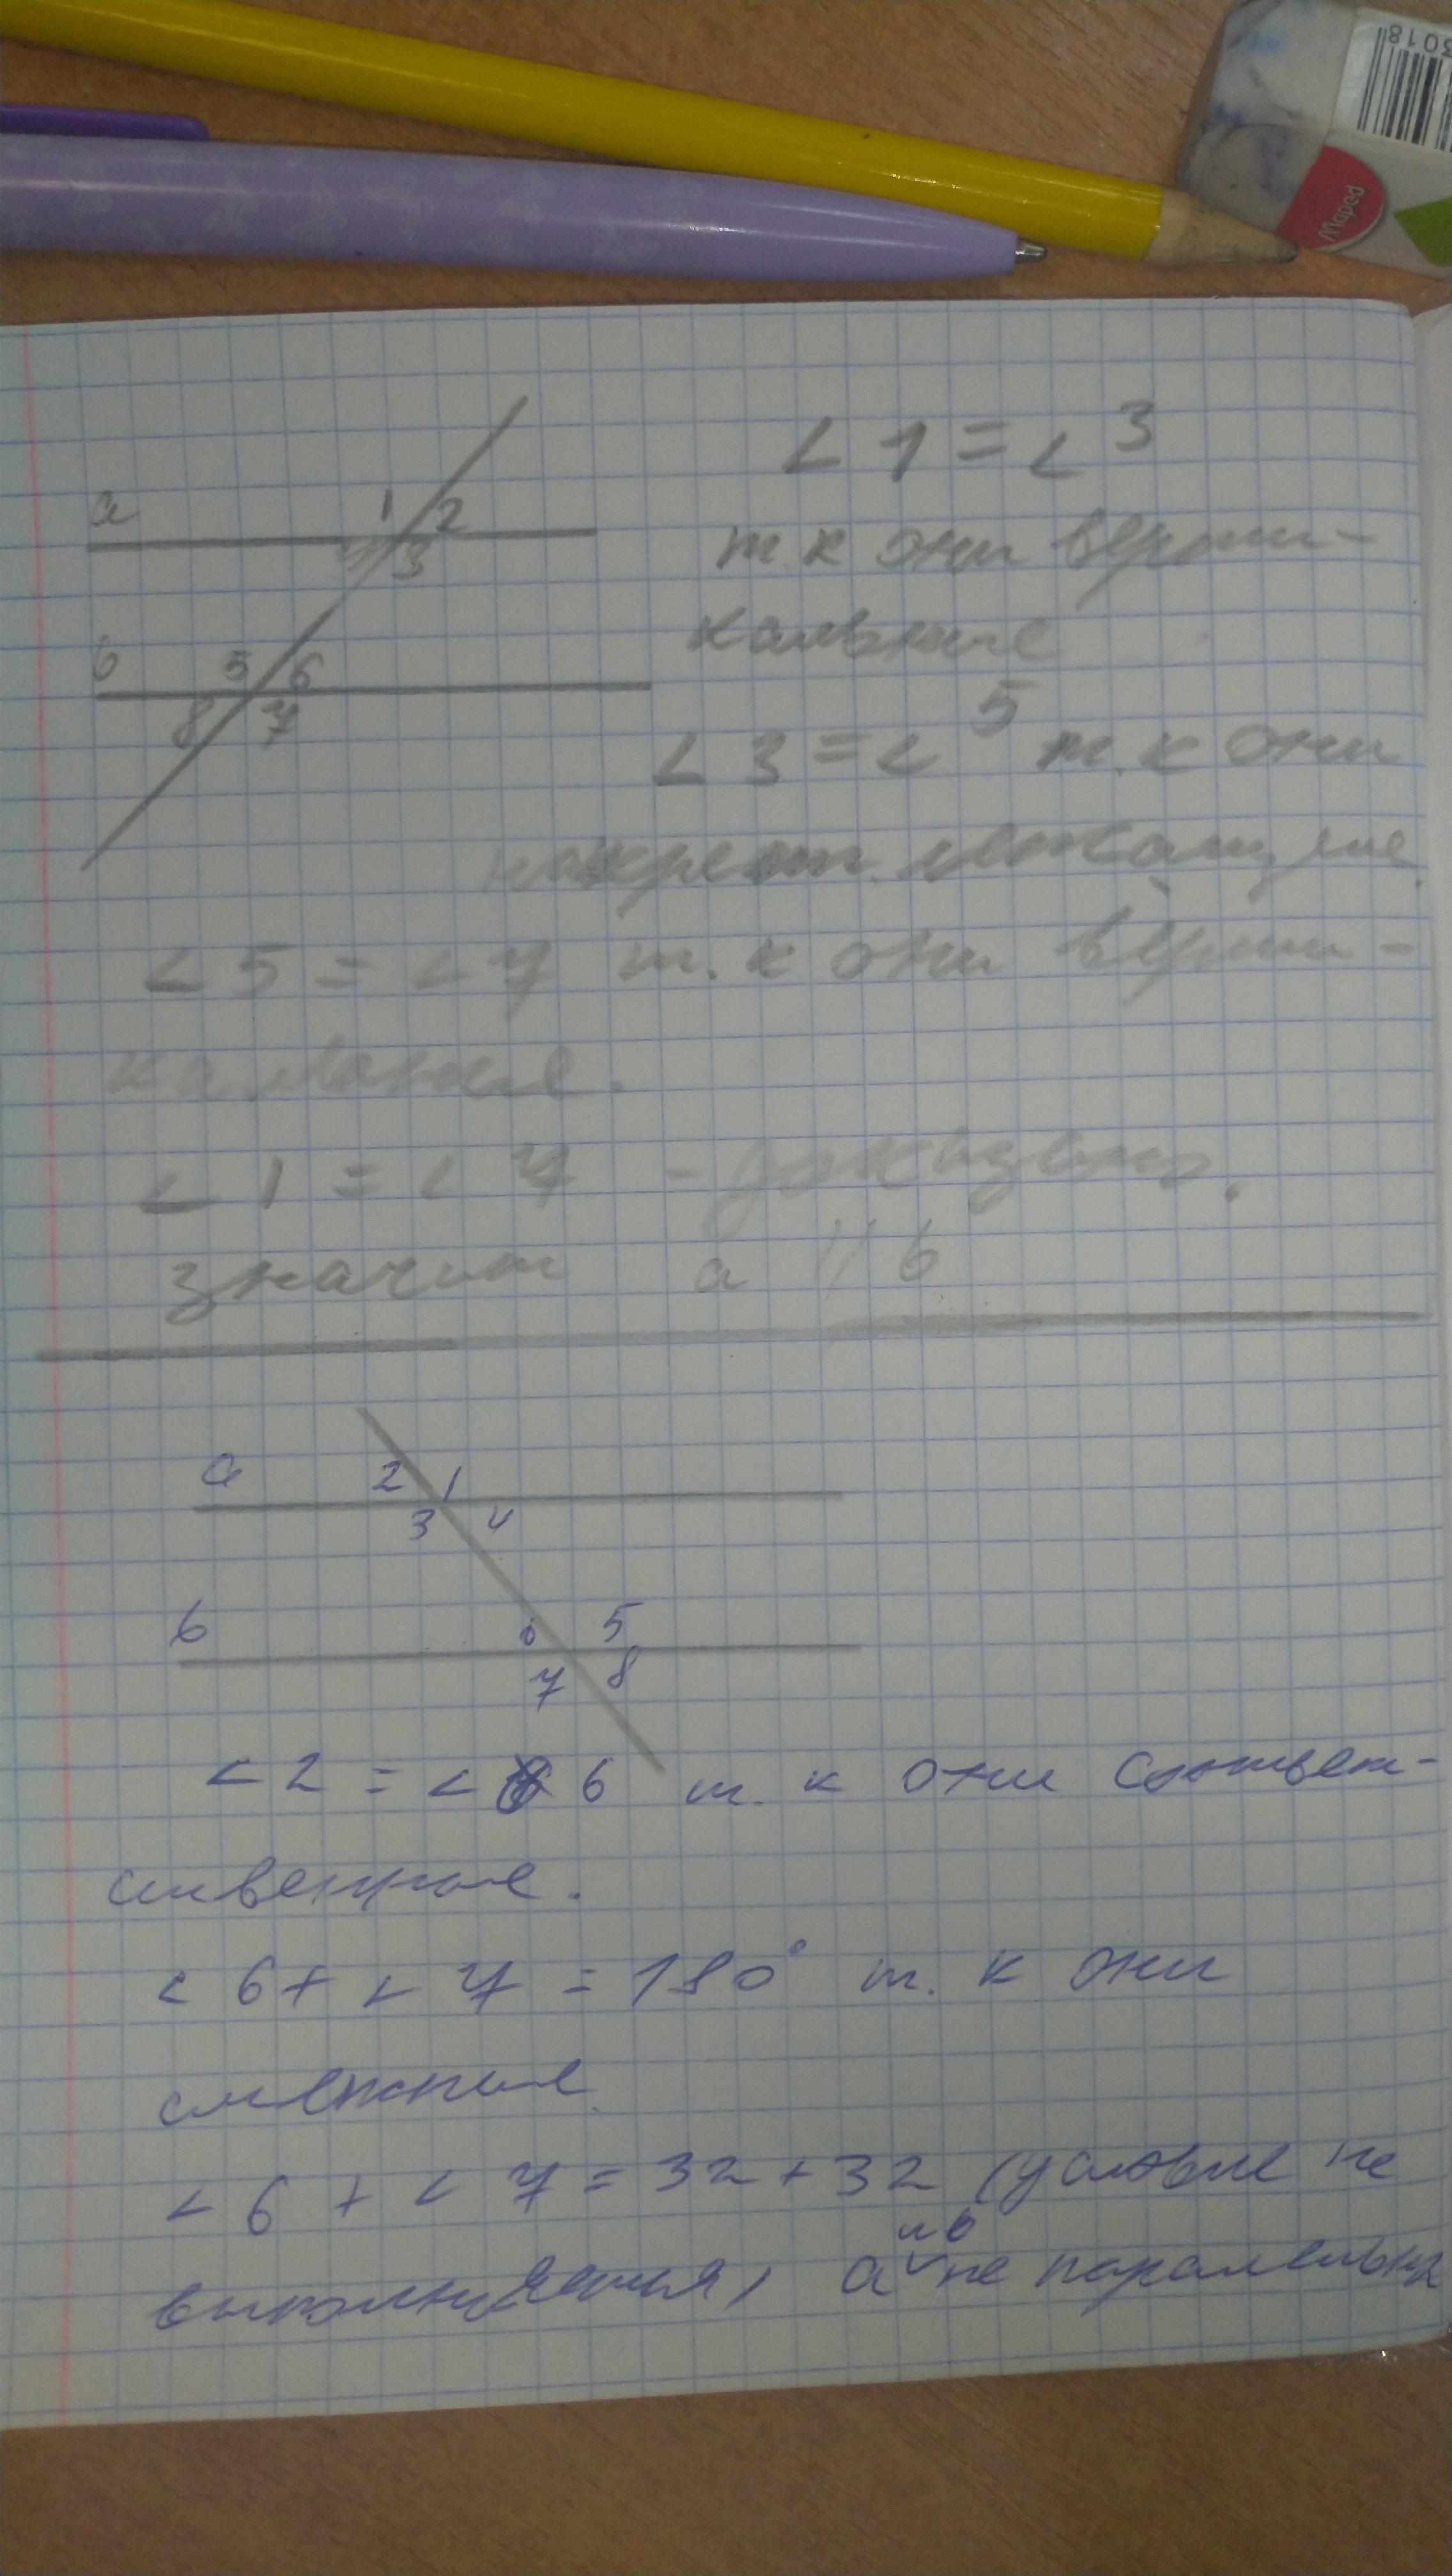 3018
Maped
a
1 2
4 3
b
5 6
8 7
∠ 1 = ∠ 3
т.к они верти-
кальные
∠ 3 = ∠ 5 т.к они
накрест лежащие
∠ 5 = ∠ 7 т.к они верти-
кальные.
∠ 1 = ∠ 7 - доказано.
значит a || b
a 2 1
3 4
b 6 5
7 8
∠ 2 = ∠ 6 т.к они соответ-
ственные.
∠ 6 + ∠ 7 = 180° т.к они
смежные
∠ 6 + ∠ 7 = 32 + 32 (условие не
и b
a не паралельны